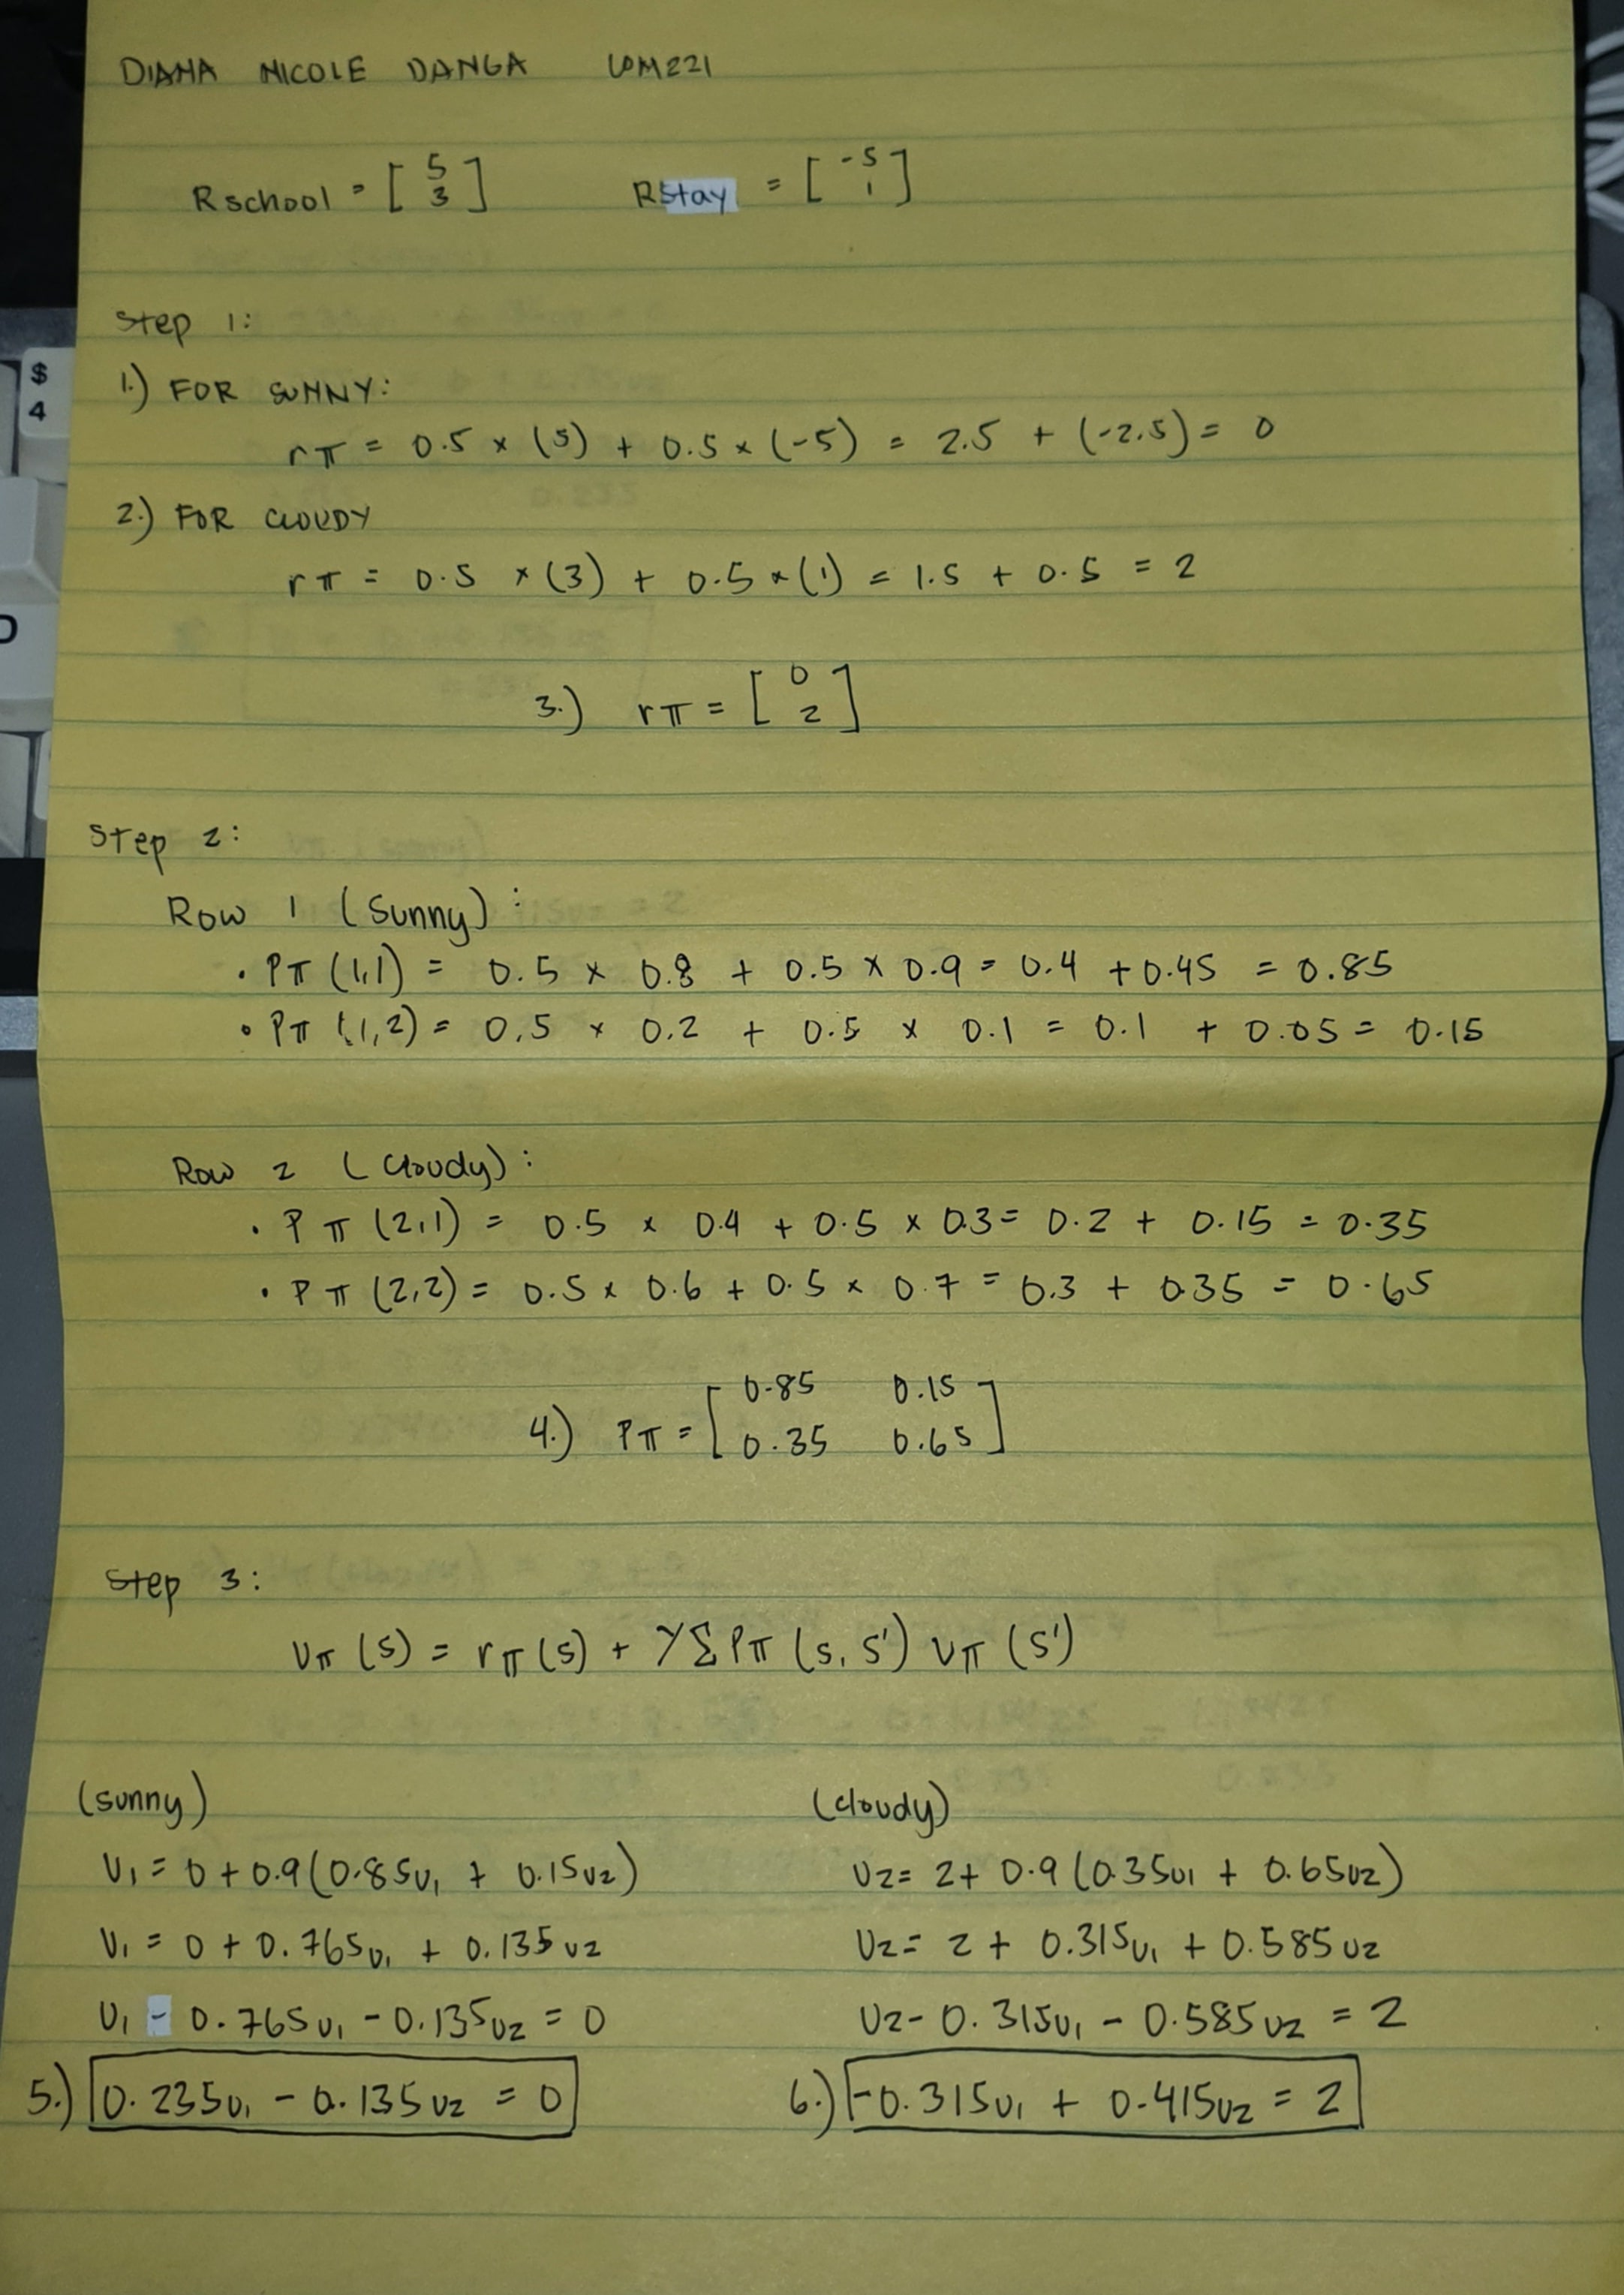 DIANA NICOLE DANGA
Rschool = [ 5 3 ] RStay = [ -5 1 ]
Step 1:
1.) FOR SUNNY:
rπ = 0.5 × (5) + 0.5 × (-5) = 2.5 + (-2.5) = 0
2.) FOR CLOUDY
rπ = 0.5 × (3) + 0.5 × (1) = 1.5 + 0.5 = 2
3.) rπ = [ 0 2 ]
Step 2:
Row 1 (Sunny):
• Pπ (1,1) = 0.5 × 0.8 + 0.5 × 0.9 = 0.4 + 0.45 = 0.85
• Pπ (1,2) = 0.5 × 0.2 + 0.5 × 0.1 = 0.1 + 0.05 = 0.15
Row 2 (Cloudy):
• Pπ (2,1) = 0.5 × 0.4 + 0.5 × 0.3 = 0.2 + 0.15 = 0.35
• Pπ (2,2) = 0.5 × 0.6 + 0.5 × 0.7 = 0.3 + 0.35 = 0.65
4.) Pπ = [ 0.85 0.15
0.35 0.65 ]
Step 3:
Vπ (S) = rπ (S) + γ Σ Pπ (S, S') Vπ (S')
(sunny)
V1 = 0 + 0.9 (0.85V1 + 0.15V2)
V1 = 0 + 0.765V1 + 0.135V2
V1 - 0.765V1 - 0.135V2 = 0
5.) 0.235V1 - 0.135V2 = 0
(cloudy)
V2 = 2 + 0.9 (0.35V1 + 0.65V2)
V2 = 2 + 0.315V1 + 0.585V2
V2 - 0.315V1 - 0.585V2 = 2
6.) -0.315V1 + 0.415V2 = 2
$
4